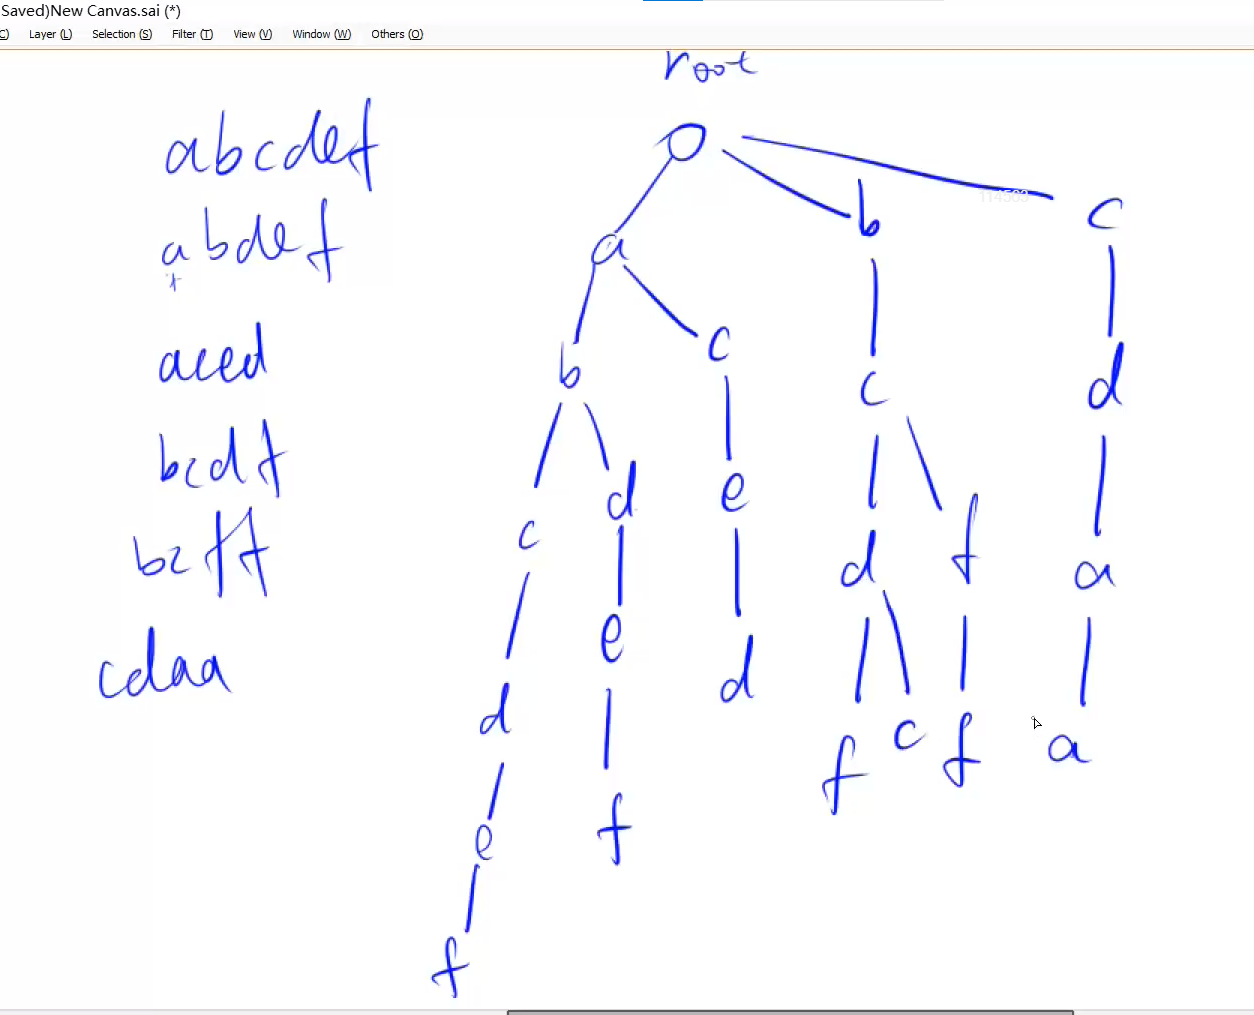 Saved)New Canvas.sai (*)
C) Layer (L) Selection (S) Filter (T) View (V) Window (W) Others (O)
root
abcdef
abdef
aced
bcdf
bcff
cdaa
b c
a
c
b
c d
d e
c
d f a
e
d
d
f c f a
e f
f